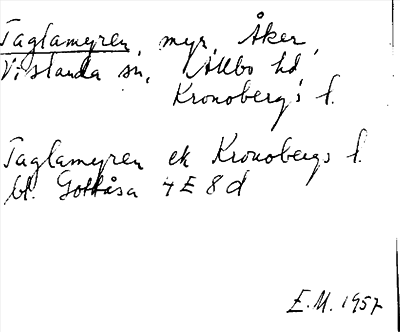 Taglamyren, myr, Åker,
Vislanda sn, Allbo hd,
Kronobergs l.
Taglamyren ek Kronobergs l.
bl. Gottåsa 4E 8d
E.M. 1957